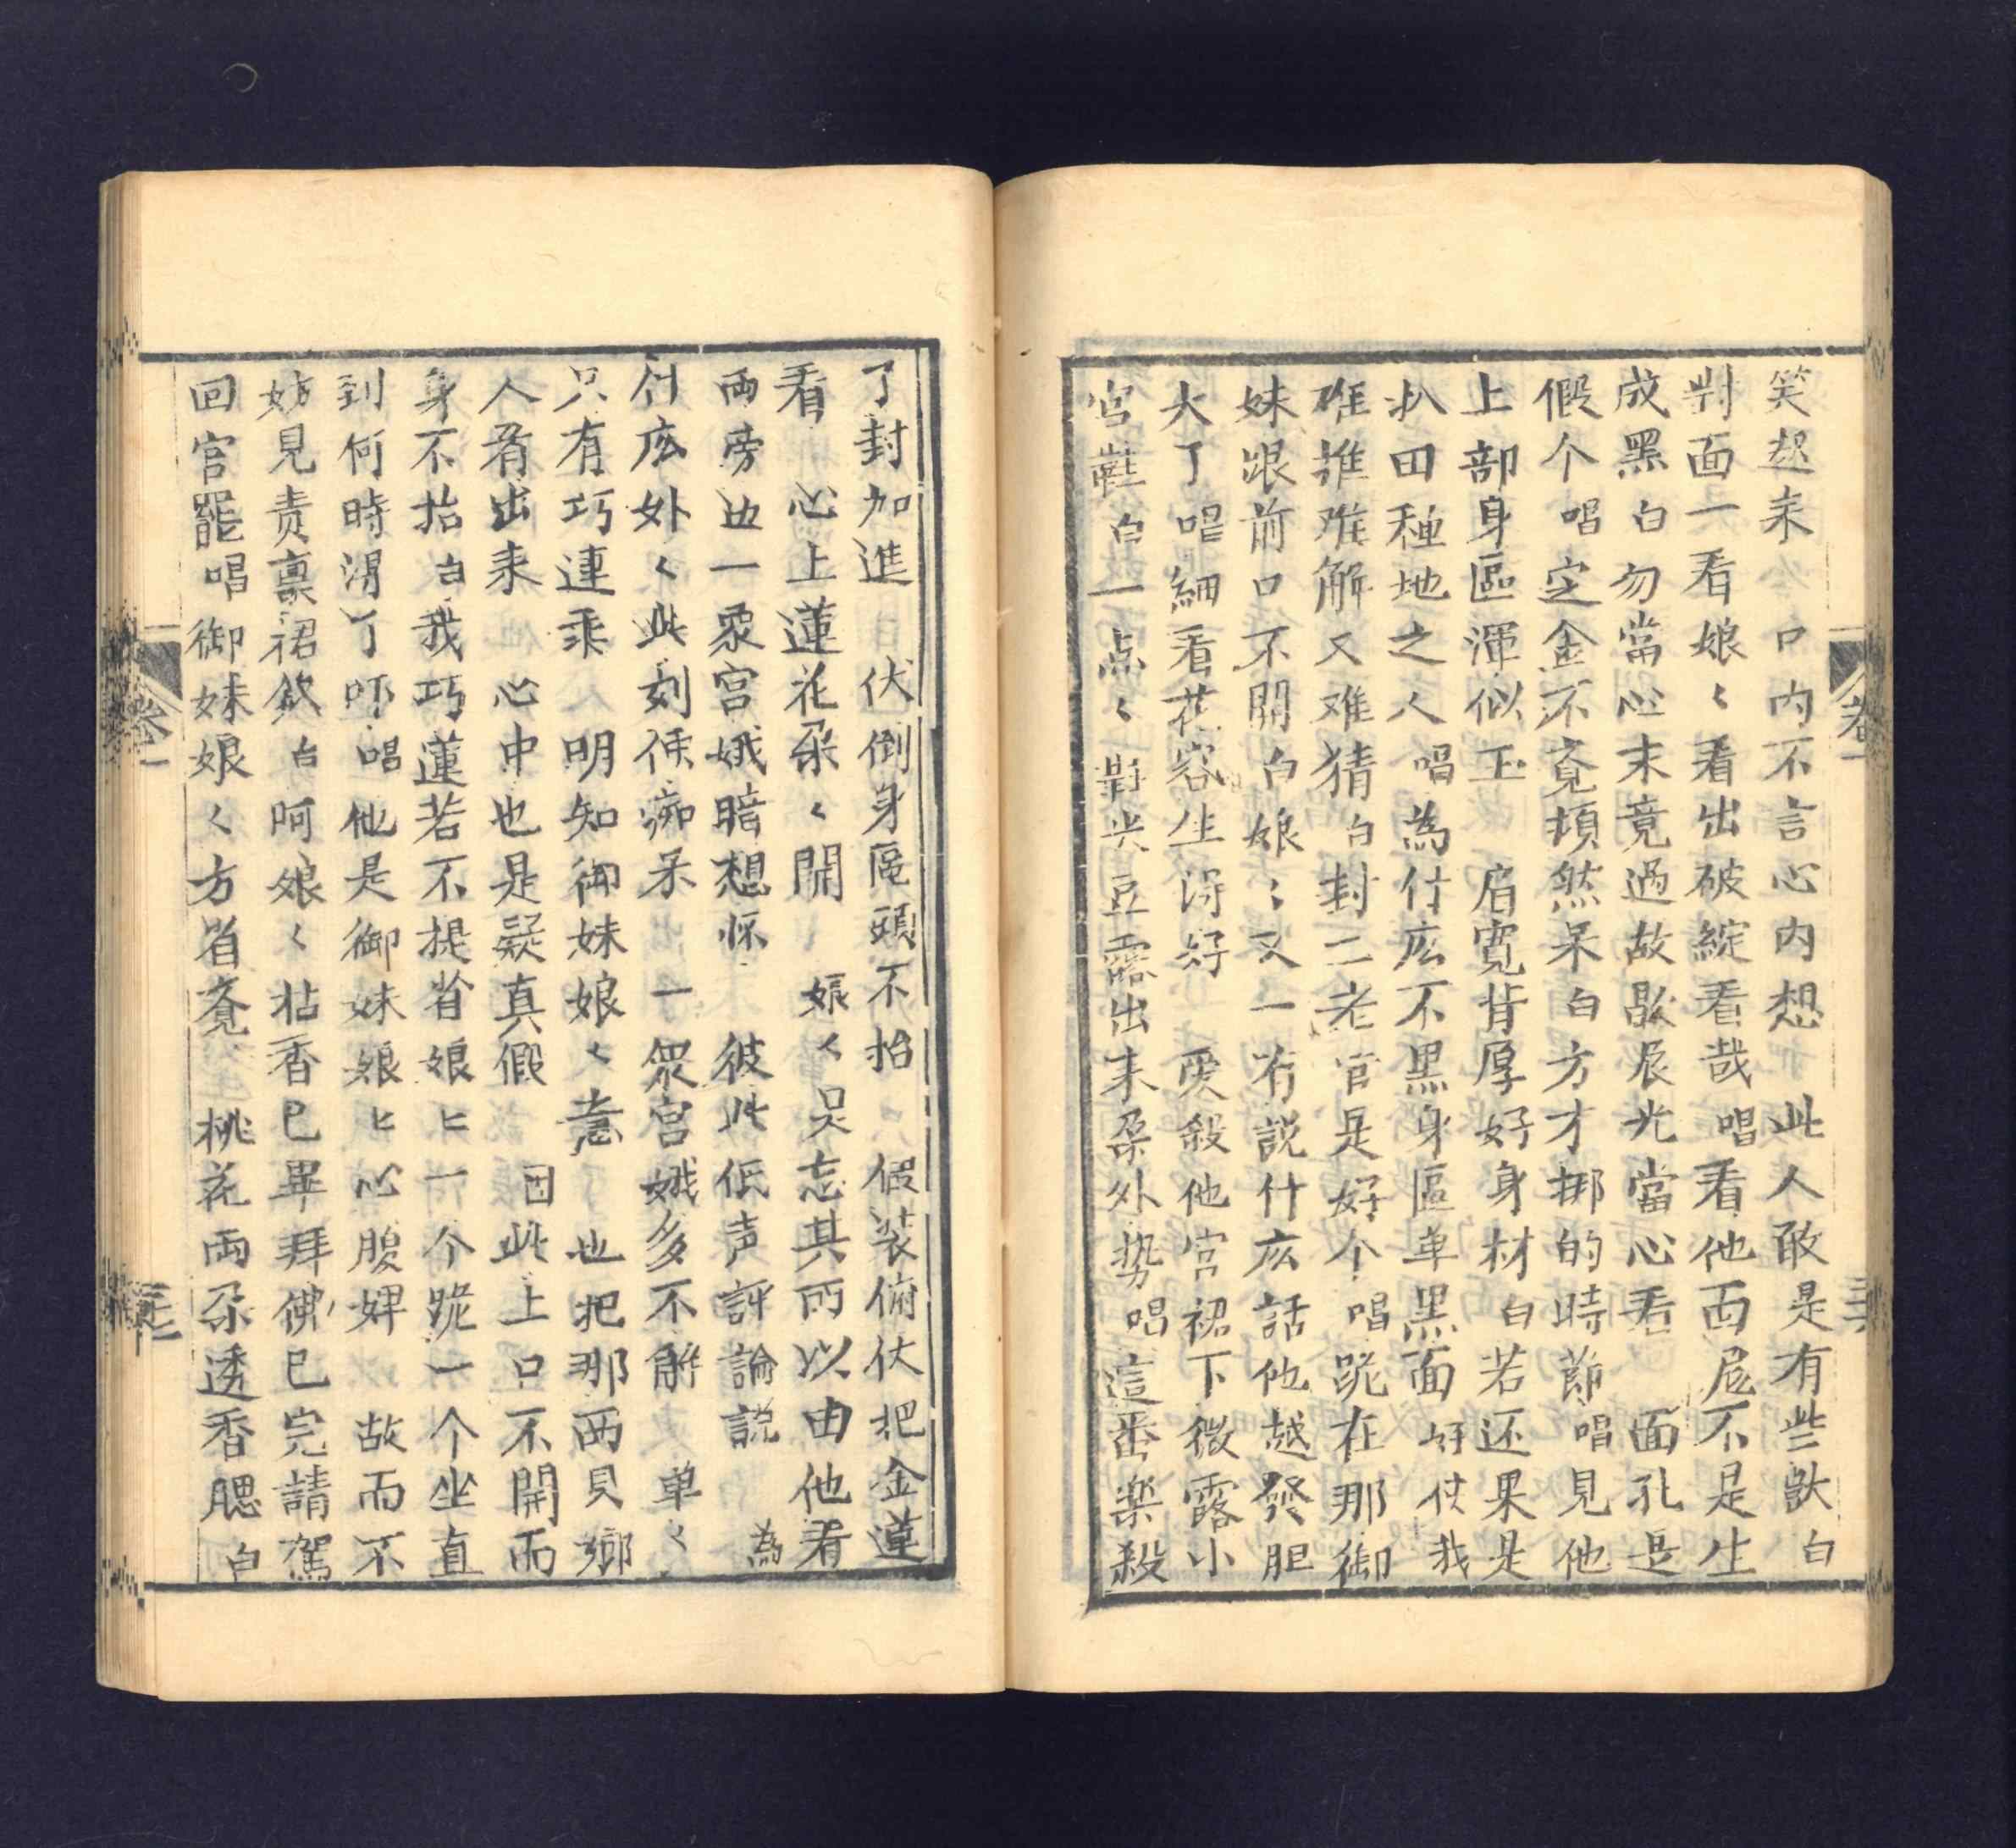 笑起来 口内不言心内想 此人敢是有些獃白
劑面一看娘〻看出破綻看哉唱看他面龎不是生
成黑白勿當心末竟過故歇辰光當心看 面孔是
假个唱定金不竟頓然呆白方才揶的時節唱見他
上部身區渾似玉 眉寬背厚好身材白若还果是
扒田種地之人唱為付庅不黑身區单黑面 好伩我
难推难解又难猜白封二老官是好个唱跪在那御
妹跟前口不開白娘〻又一有説什庅話他越發胆
大了唱細看花容生得好 爱殺他宫裙下微露小
宫鞋白一点〻對尖豆露出来朶外势唱這番楽殺
了封加進 伏倒身區頭不抬 假装俯伏把金蓮
看 心上蓮花朶〻開 娘〻呉忘其所以由他看
兩旁边一衆宫娥暗想怀 彼此低声評論説 為
什庅外〻此刻候痴呆 一衆宫娥多不解 单〻
只有巧連乖 明知御妹娘〻意 也把那两貝鄉
人看出来 心中也是疑真假 因此上口不開而
身不抬白我巧蓮若不提省娘〻一个跪一个坐直
到何時滑了吓唱他是御妹娘〻心腹婢 故而不
妨見责禀裙欽白呵娘〻拈香已畢拜佛已完請駕
回宫罷唱御妹娘〻方省竟 桃花兩朶透香腮白
卷一
卷一